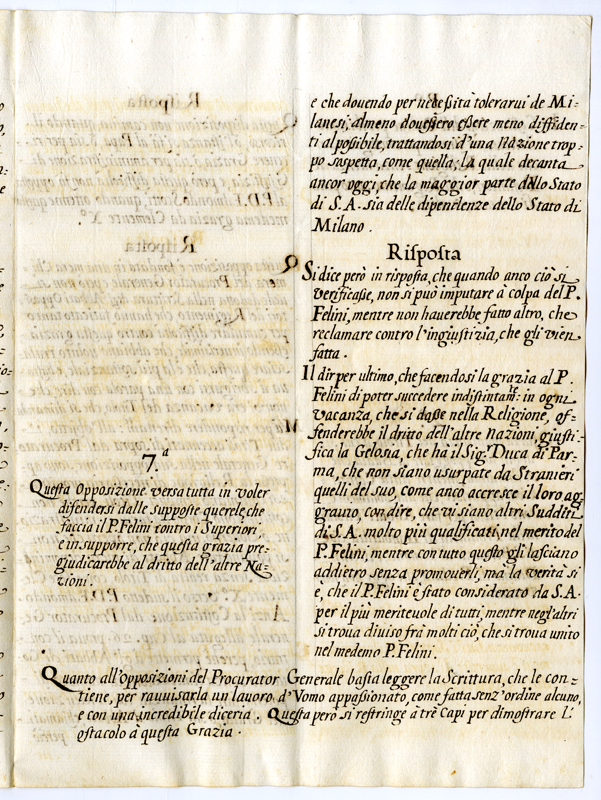 e che douendo per neceßità tolerarui de Mi=
lanesi, almeno doueßero eßere meno diffiden=
ti al poßibile, trattandosi d'una Nazione trop=
po sospetta, come quella; la quale decanta
ancor oggi, che la maggior parte dello Stato
di S.A. sia delle dipendenze dello Stato di
Milano.
Risposta
Si dice però in risposta, che quando anco ciò si
verificaße, non si può imputare à colpa del P.
Felini, mentre non hauerebbe fatto altro, che
reclamare contro l'ingiustizia, che gli vien
fatta.
Il dir per ultimo, che facendosi la grazia al P.
Felini di poter succedere indistintam.te in ogni
vacanza, che si daße nella Religione, of=
fenderebbe il dritto dell'altre Nazioni, giusti=
fica la Gelosia, che hà il Sig.r Duca di Par=
ma, che non siano usurpate da Stranieri
quelli del suo, come anco accresce il loro ag=
grauio, con dire, che vi siano altri Sudditi
di S.A. molto più qualificati nel merito del
P. Felini, mentre con tutto questo gli lasciano
addietro senza promouerli, mà la verità si
e, che il P. Felini è stato considerato da S.A.
per il più meriteuole di tutti, mentre negl'altri
si troua diuiso frà molti ciò, che si troua unito
nel medemo P. Felini.
7.a
Questa Opposizione versa tutta in voler
difendersi dalle supposte querele, che
faccia il P. Felini contro i Superiori,
e in supporre, che questa grazia pre=
giudicarebbe al dritto dell'altre Na=
zioni.
Quanto all'opposizioni del Procurator Generale basta leggere la Scrittura, che le con=
tiene, per rauuisarla un lauoro d'Vomo appaßionato, come fatta senz'ordine alcuno,
e con una incredibile diceria. Questa però si restringe à trè Capi per dimostrare L'
ostacolo à questa Grazia.